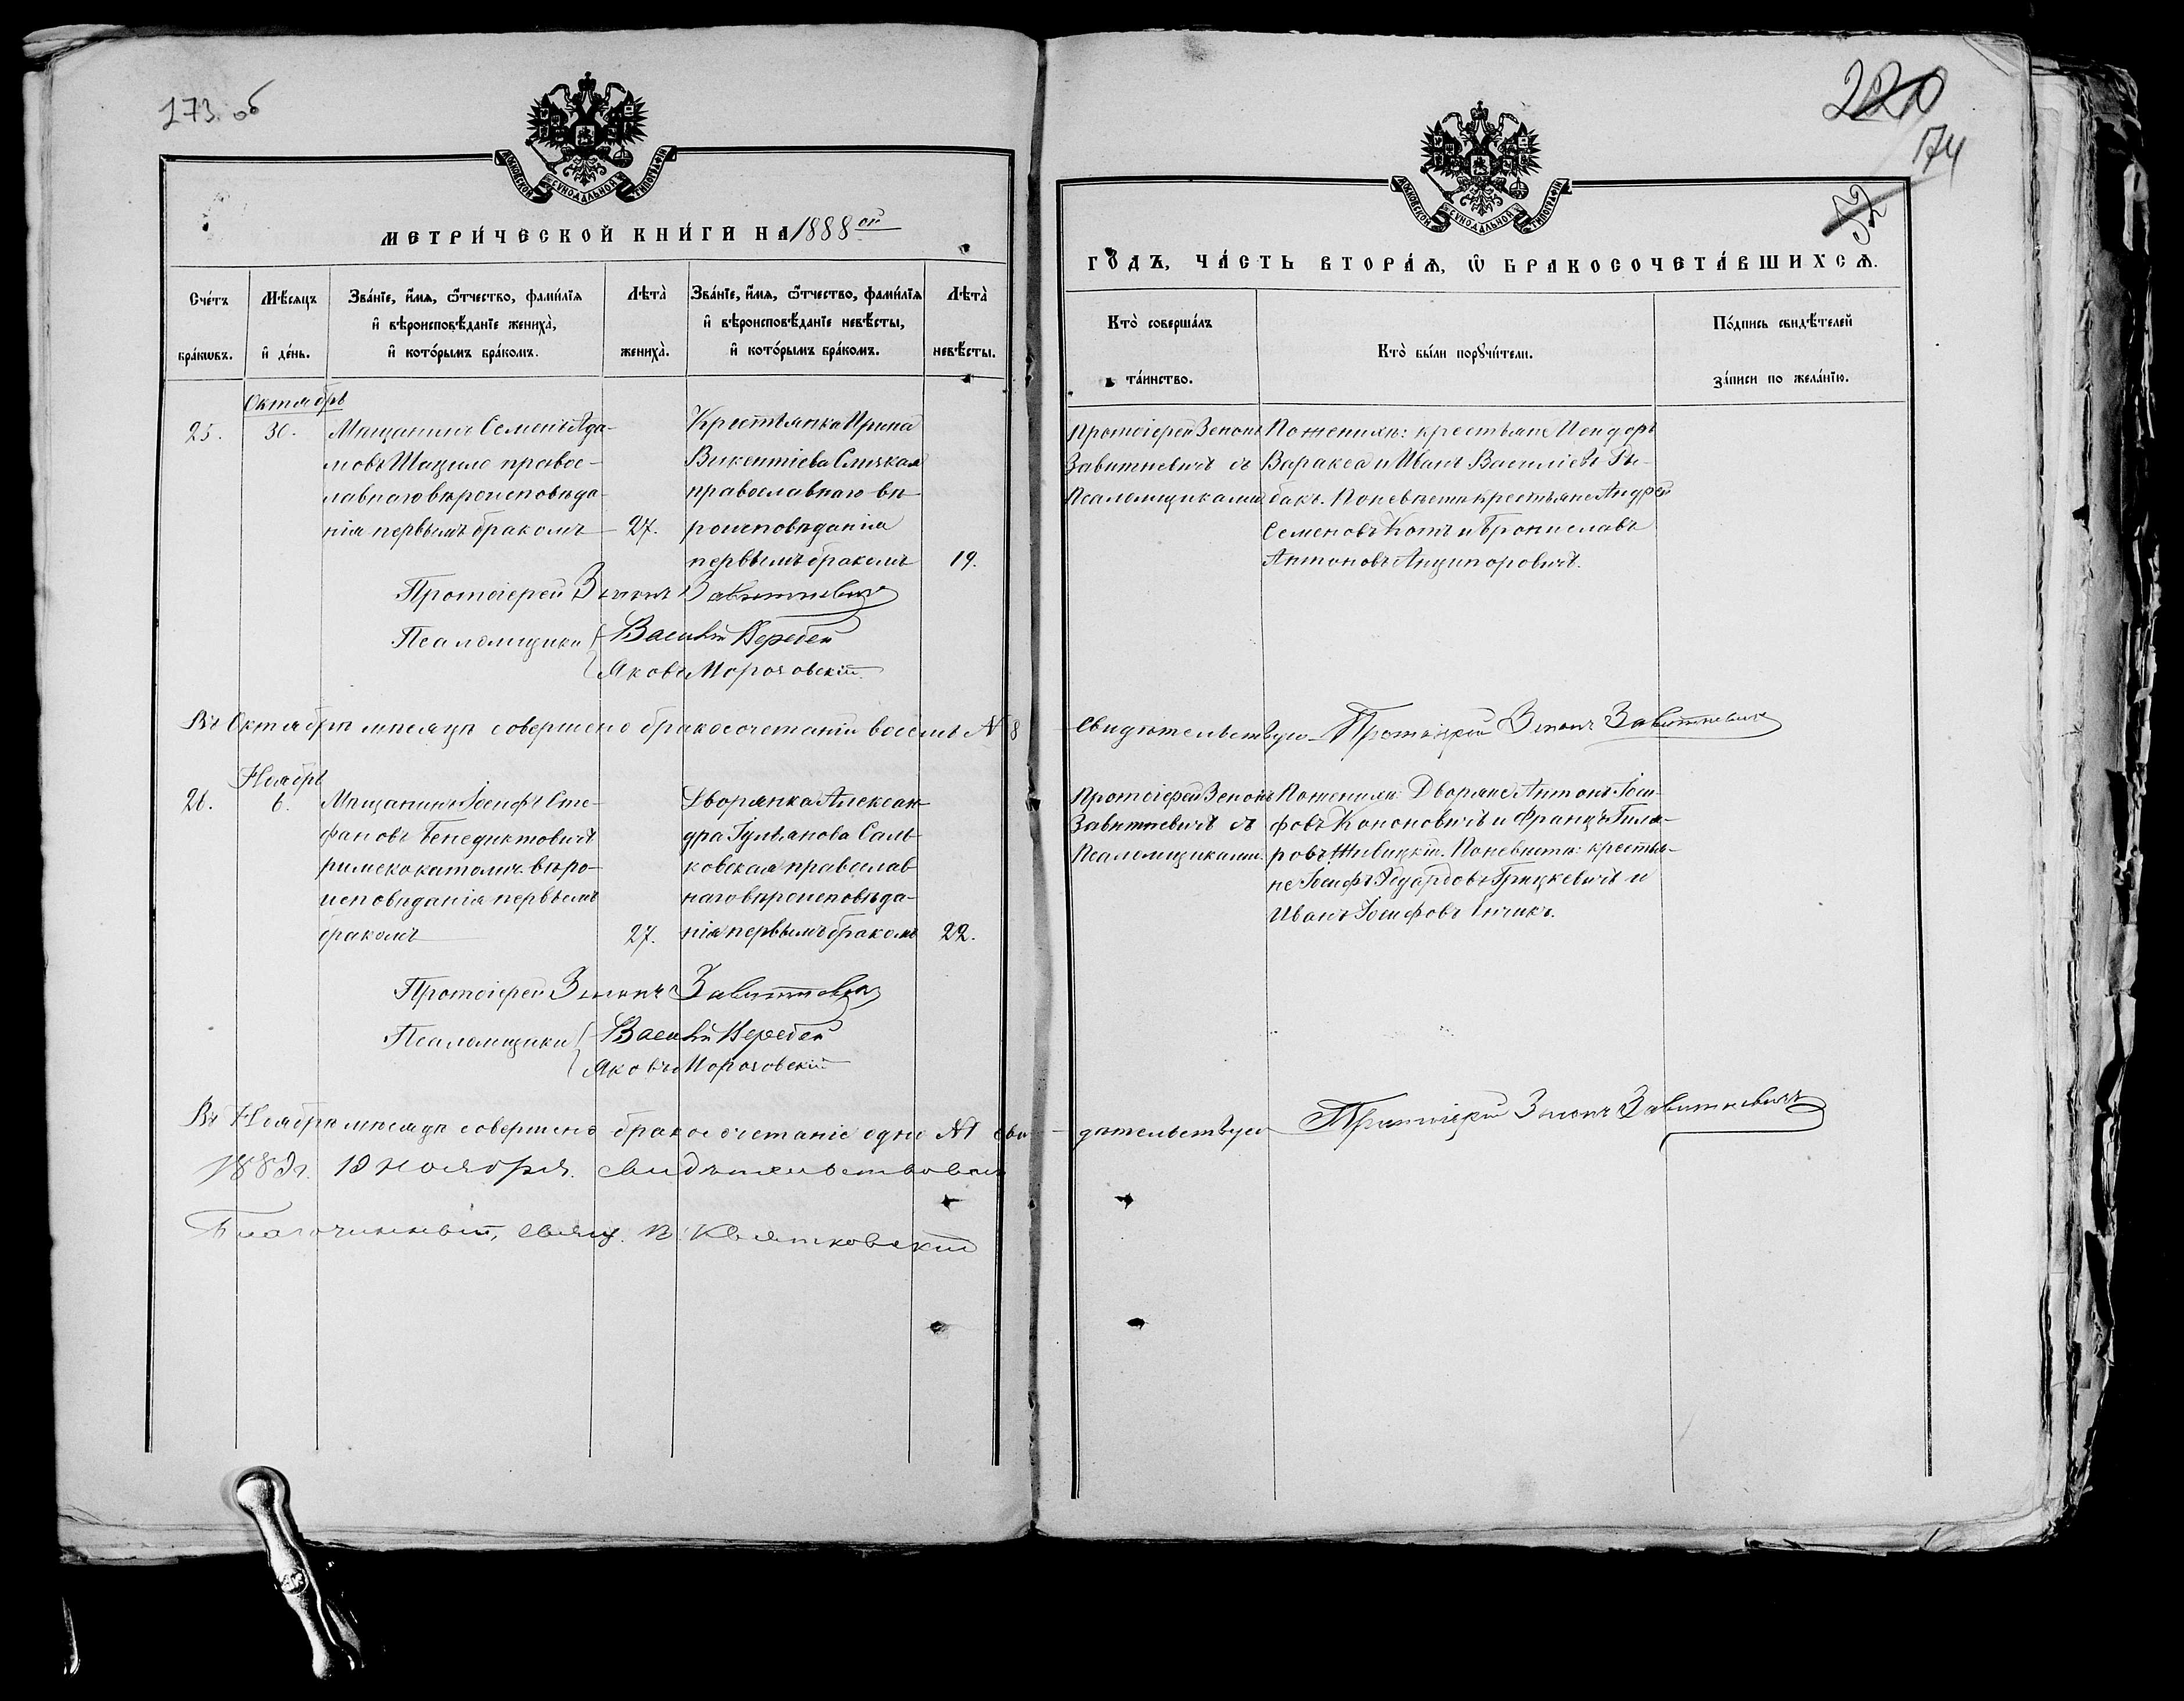 173 об
МОСКОВСКОЙ СѴНОДАЛЬНОЙ ТИПОГРАФІИ
МЕТРИ́ЧЕСКОЙ КНИ́ГИ НА 1888 ой
Сче́тъ бра́кωвъ.
Мѣ́сяцъ и҆ де́нь.
Зва́нїе, и҆́мѧ, ѻ҆́тчество, фами́лїѧ
и҆ вѣроисповѣ́данїе жениха̀,
и҆ кото́рымъ бра́комъ.
Лѣта̀ жениха̀.
Зва́нїе, и҆́мѧ, ѻ҆́тчество, фами́лїѧ
и҆ вѣроисповѣ́данїе невѣ́сты,
и҆ кото́рымъ бра́комъ.
Лѣта̀ невѣ́сты.
Октябрь
25.
30.
Мѣщанинъ Семенъ Ада-
мовъ Шацило правос-
лавнаго вѣроисповѣда-
нія первымъ бракомъ
27.
Крестьянка Ирина
Викентіева
православнаго вѣ-
роисповѣданія
первымъ бракомъ
19.
Протоіерей Зенонъ Завитневичъ
Псаломщики Василій
Яковъ Морозовскій
Въ Октябрѣ мѣсяцѣ совершено бракосочетаній восемь № 8
Ноябрь
26.
6.
Мѣщанинъ Іосифъ Сте-
фановъ Бенедиктовичъ
римскокатолич. вѣро-
исповѣданія первымъ
бракомъ
27.
Дворянка Алексан-
дра Іульянова Саль-
ковская православ-
наго вѣроисповѣда-
нія первымъ бракомъ
22.
Протоіерей Зенонъ Завитневичъ
Псаломщики Василій
Яковъ Морозовскій
Въ Ноябрѣ мѣсяцѣ совершено бракосочетаніе одно № 1 сви-
1888 г. 18 ноября. Свидѣтельствовалъ
Благочинный, свящ. В. Квятковскій
220
174
52
МОСКОВСКОЙ СѴНОДАЛЬНОЙ ТИПОГРАФІИ
ГО́ДЪ, ЧА́СТЬ ВТОРА́Ѧ, Ѽ БРАКОСОЧЕТА́ВШИХСѦ.
Кто̀ соверша́лъ
та́инство.
Кто̀ бы́ли порꙋчи́тели.
По́дпись свидѣ́телей
за́писи по жела́нїю.
Протоіерей Зенонъ
Завитневичъ съ
Псаломщиками.
По женихѣ: крестьяне
Варакса и Иванъ Василіевъ Ры-
бакъ. По невѣстѣ крестьяне Андрей
Семеновъ Котъ и Брониславъ
Антоновъ Анципоровичъ.
Свидѣтельствую Протоіерей Зенонъ Завитневичъ
Протоіерей Зенонъ
Завитневичъ съ
Псаломщиками.
По женихѣ: Дворяне Антонъ Іоси-
фовъ Кононовичъ и Францъ Гиля-
ровъ По невѣстѣ: крестья-
не Іосифъ Эдуардовъ Грицкевичъ и
Иванъ Іосифовъ
дѣтельствую Протоіерей Зенонъ Завитневичъ